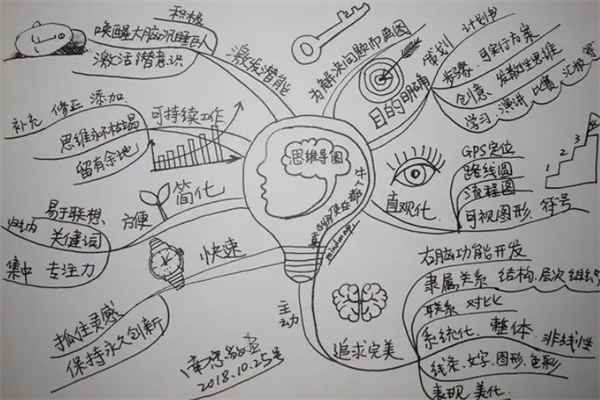 积极
唤醒大脑沉睡巨人
激活潜意识
激发潜能
补充 修正 添加
思维永不枯竭
留有余地
可持续工作
归纳
易于联想
关键词
集中 专注力
方便
简化
快速
抓住灵感
保持永久创新
思维导图
mindmap
为解决问题而画图
目的明确
策划 计划书
步骤 可实行方案
创意 发散性思维
学习 演讲 比赛 汇报
直观化
GPS定位
路线图
流程图
可视图形 符号
1
2
3
主动
追求完美
右脑功能开发
隶属关系 结构、层次 组织
联系 对比
系统化 整体 非线性
线条、文字、图形、色彩
表现 美化
2018.10.25号